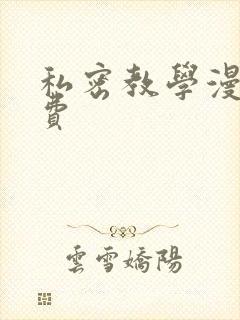 私密教學漫
費
雲雪嬌陽